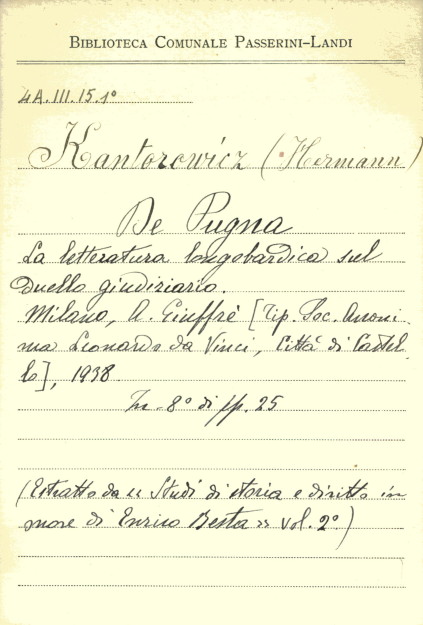 BIBLIOTECA COMUNALE PASSERINI-LANDI
4A.III.15.1º
Kantorowicz (Hermann)
De Pugna
La letteratura longobardica sul
duello giudiziario.
Milano, A. Giuffrè [Tip. Soc. Anoni-
ma Leonardo da Vinci, Città di Castel-
lo], 1938
In-8º di pp. 25
(Estratto da « Studi di storia e diritto in
onore di Enrico Besta » vol. 2º)